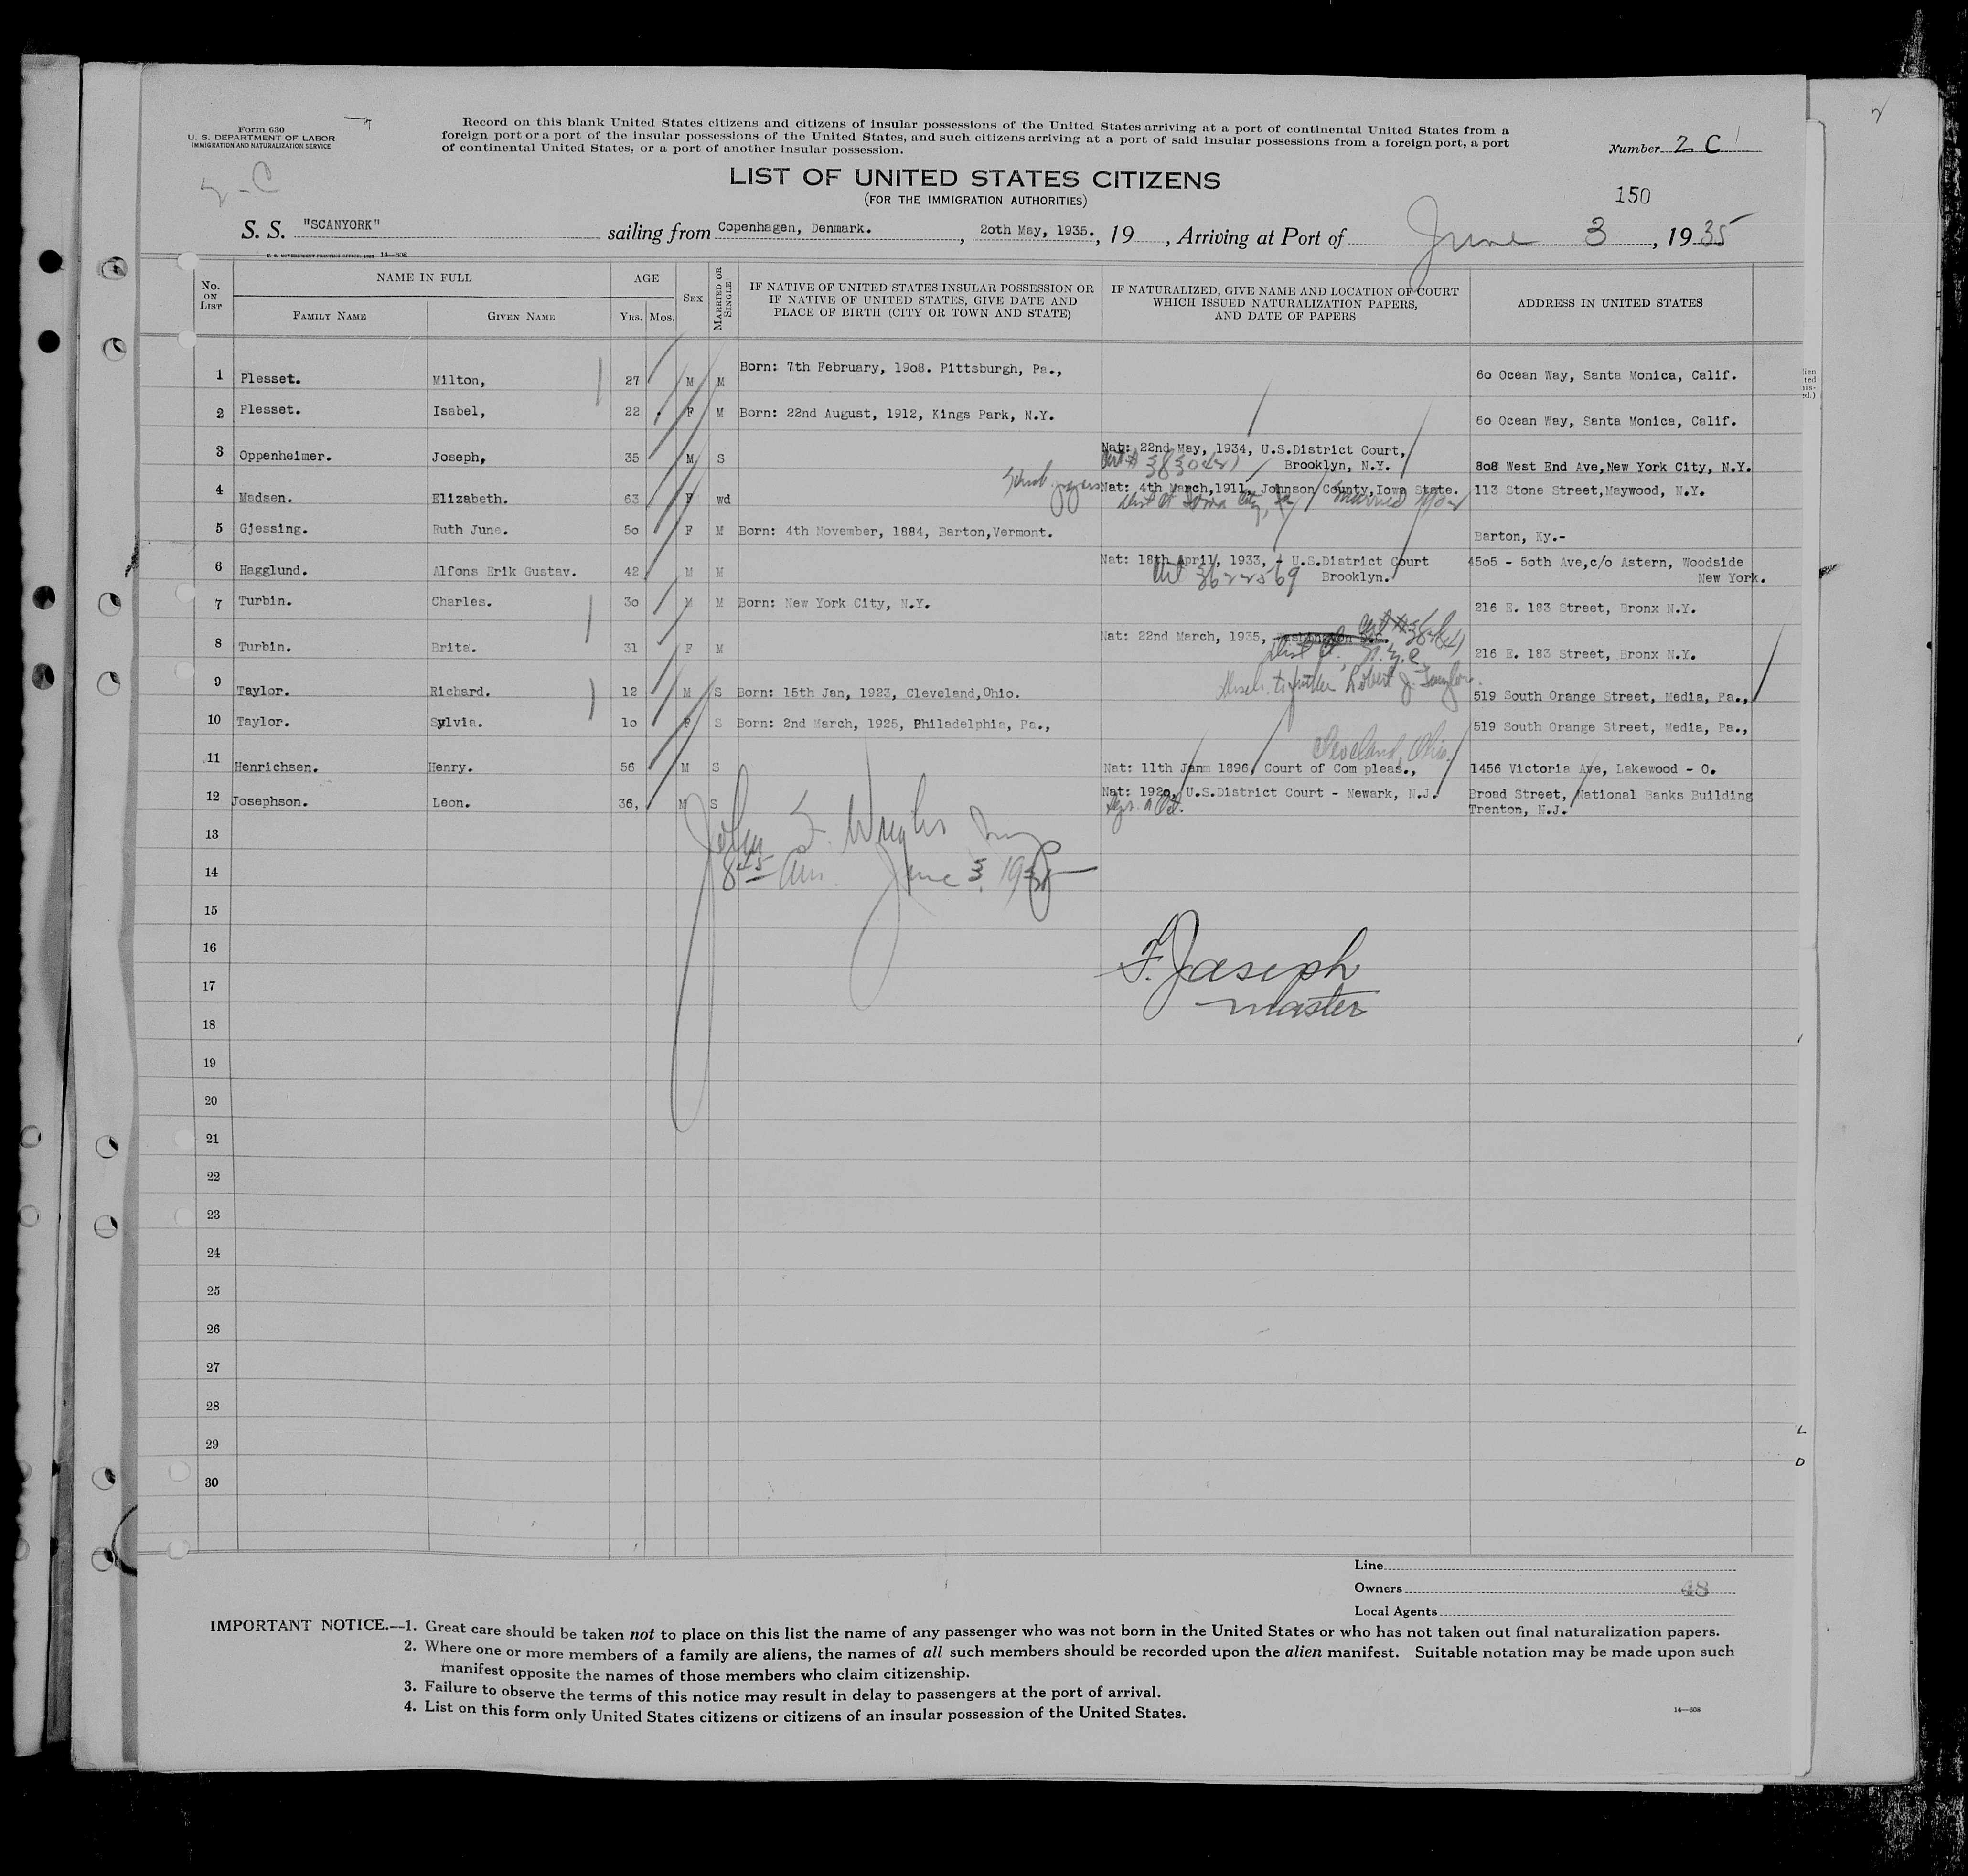 Form 630
U. S. DEPARTMENT OF LABOR
IMMIGRATION AND NATURALIZATION SERVICE
2-C
Record on this blank United States citizens and citizens of insular possessions of the United States arriving at a port of continental United States from a
foreign port or a port of the insular possessions of the United States, and such citizens arriving at a port of said insular possessions from a foreign port, a port
of continental United States, or a port of another insular possession.
Number 2 C
LIST OF UNITED STATES CITIZENS
(FOR THE IMMIGRATION AUTHORITIES)
150
S. S. "SCANYORK" sailing from Copenhagen, Denmark. , 20th May, 1935. , 19 , Arriving at Port of June 3 , 19 35
U. S. GOVERNMENT PRINTING OFFICE 14—608
No. ON LIST
NAME IN FULL
FAMILY NAME
GIVEN NAME
AGE
YRS.
MOS.
SEX
MARRIED OR SINGLE
IF NATIVE OF UNITED STATES INSULAR POSSESSION OR
IF NATIVE OF UNITED STATES, GIVE DATE AND
PLACE OF BIRTH (CITY OR TOWN AND STATE)
IF NATURALIZED, GIVE NAME AND LOCATION OF COURT
WHICH ISSUED NATURALIZATION PAPERS,
AND DATE OF PAPERS
ADDRESS IN UNITED STATES
1 Plesset. Milton, 27 M M Born: 7th February, 1908. Pittsburgh, Pa., 60 Ocean Way, Santa Monica, Calif.
2 Plesset. Isabel, 22 F M Born: 22nd August, 1912, Kings Park, N.Y. 60 Ocean Way, Santa Monica, Calif.
3 Oppenheimer. Joseph, 35 M S Nat: 22nd May, 1934, U.S.District Court,
Brooklyn, N.Y. 808 West End Ave,New York City, N.Y.
4 Madsen. Elizabeth. 63 F wd Nat: 4th March,1911, Johnson County,Iowa State. 113 Stone Street,Maywood, N.Y.
Dist Ct Iowa City, Ia married
5 Gjessing. Ruth June. 50 F M Born: 4th November, 1884, Barton,Vermont. Barton, Ky.-
6 Hagglund. Alfons Erik Gustav. 42 M M Nat: 18th April, 1933, - U.S.District Court
Brooklyn. 4505 - 50th Ave,c/o Astern, Woodside
New York.
3622569
7 Turbin. Charles. 30 M M Born: New York City, N.Y. 216 E. 183 Street, Bronx N.Y.
8 Turbin. Brita. 31 F M Nat: 22nd March, 1935, 216 E. 183 Street, Bronx N.Y.
Dist Ct, N.Y.C.
9 Taylor. Richard. 12 M S Born: 15th Jan, 1923, Cleveland,Ohio. 519 South Orange Street, Media, Pa.,
father Robert J. Taylor.
10 Taylor. Sylvia. 10 F S Born: 2nd March, 1925, Philadelphia, Pa., 519 South Orange Street, Media, Pa.,
Cleveland, Ohio.
11 Henrichsen. Henry. 56 M S Nat: 11th Janm 1896, Court of Com pleas., 1456 Victoria Ave, Lakewood - O.
12 Josephson. Leon. 36, M S Nat: 1920, U.S.District Court - Newark, N.J. Broad Street, National Banks Building
Trenton, N.J.
13
14
8 45 Am. June 3, 1935
15
16
F. Joseph
17
master
18
19
20
21
22
23
24
25
26
27
28
29
30
Line
Owners 48
Local Agents
IMPORTANT NOTICE.—1. Great care should be taken not to place on this list the name of any passenger who was not born in the United States or who has not taken out final naturalization papers.
2. Where one or more members of a family are aliens, the names of all such members should be recorded upon the alien manifest. Suitable notation may be made upon such
manifest opposite the names of those members who claim citizenship.
3. Failure to observe the terms of this notice may result in delay to passengers at the port of arrival.
4. List on this form only United States citizens or citizens of an insular possession of the United States.
14—608